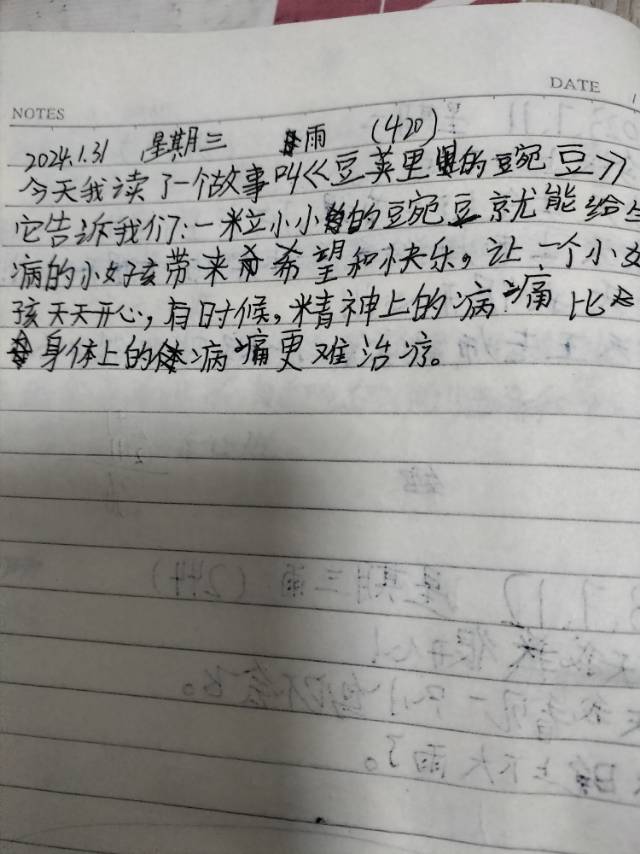 DATE
NOTES
2024.1.31 星期三 雨 (420)
今天我读了一个故事叫《豆荚里的豆宛豆》
它告诉我们:一粒小小的豆宛豆就能给生
病的小女孩带来希望和快乐。让一个小女
孩天天开心,有时候,精神上的病痛比
身体上的病痛更难治疗。